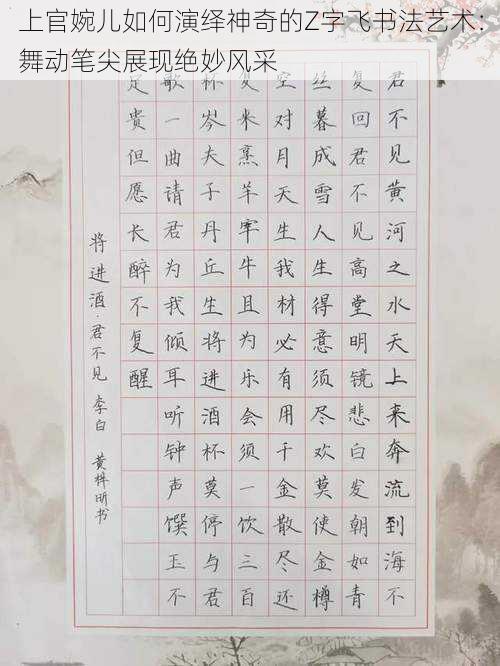 上官婉儿如何演绎神奇的Z字飞书法艺术：
舞动笔尖展现绝妙风采
君不见黄河之水天上来奔流到海不
复回君不见高堂明镜悲白发朝如青
丝暮成雪人生得意须尽欢莫使金樽
空对月天生我材必有用千金散尽还
复来烹羊宰牛且为乐会须一饮三百
杯岑夫子丹丘生将进酒杯莫停与君
歌一曲请君为我倾耳听钟声馔玉不
足贵但愿长醉不复醒
将进酒·君不见 李白 黄梓昕书